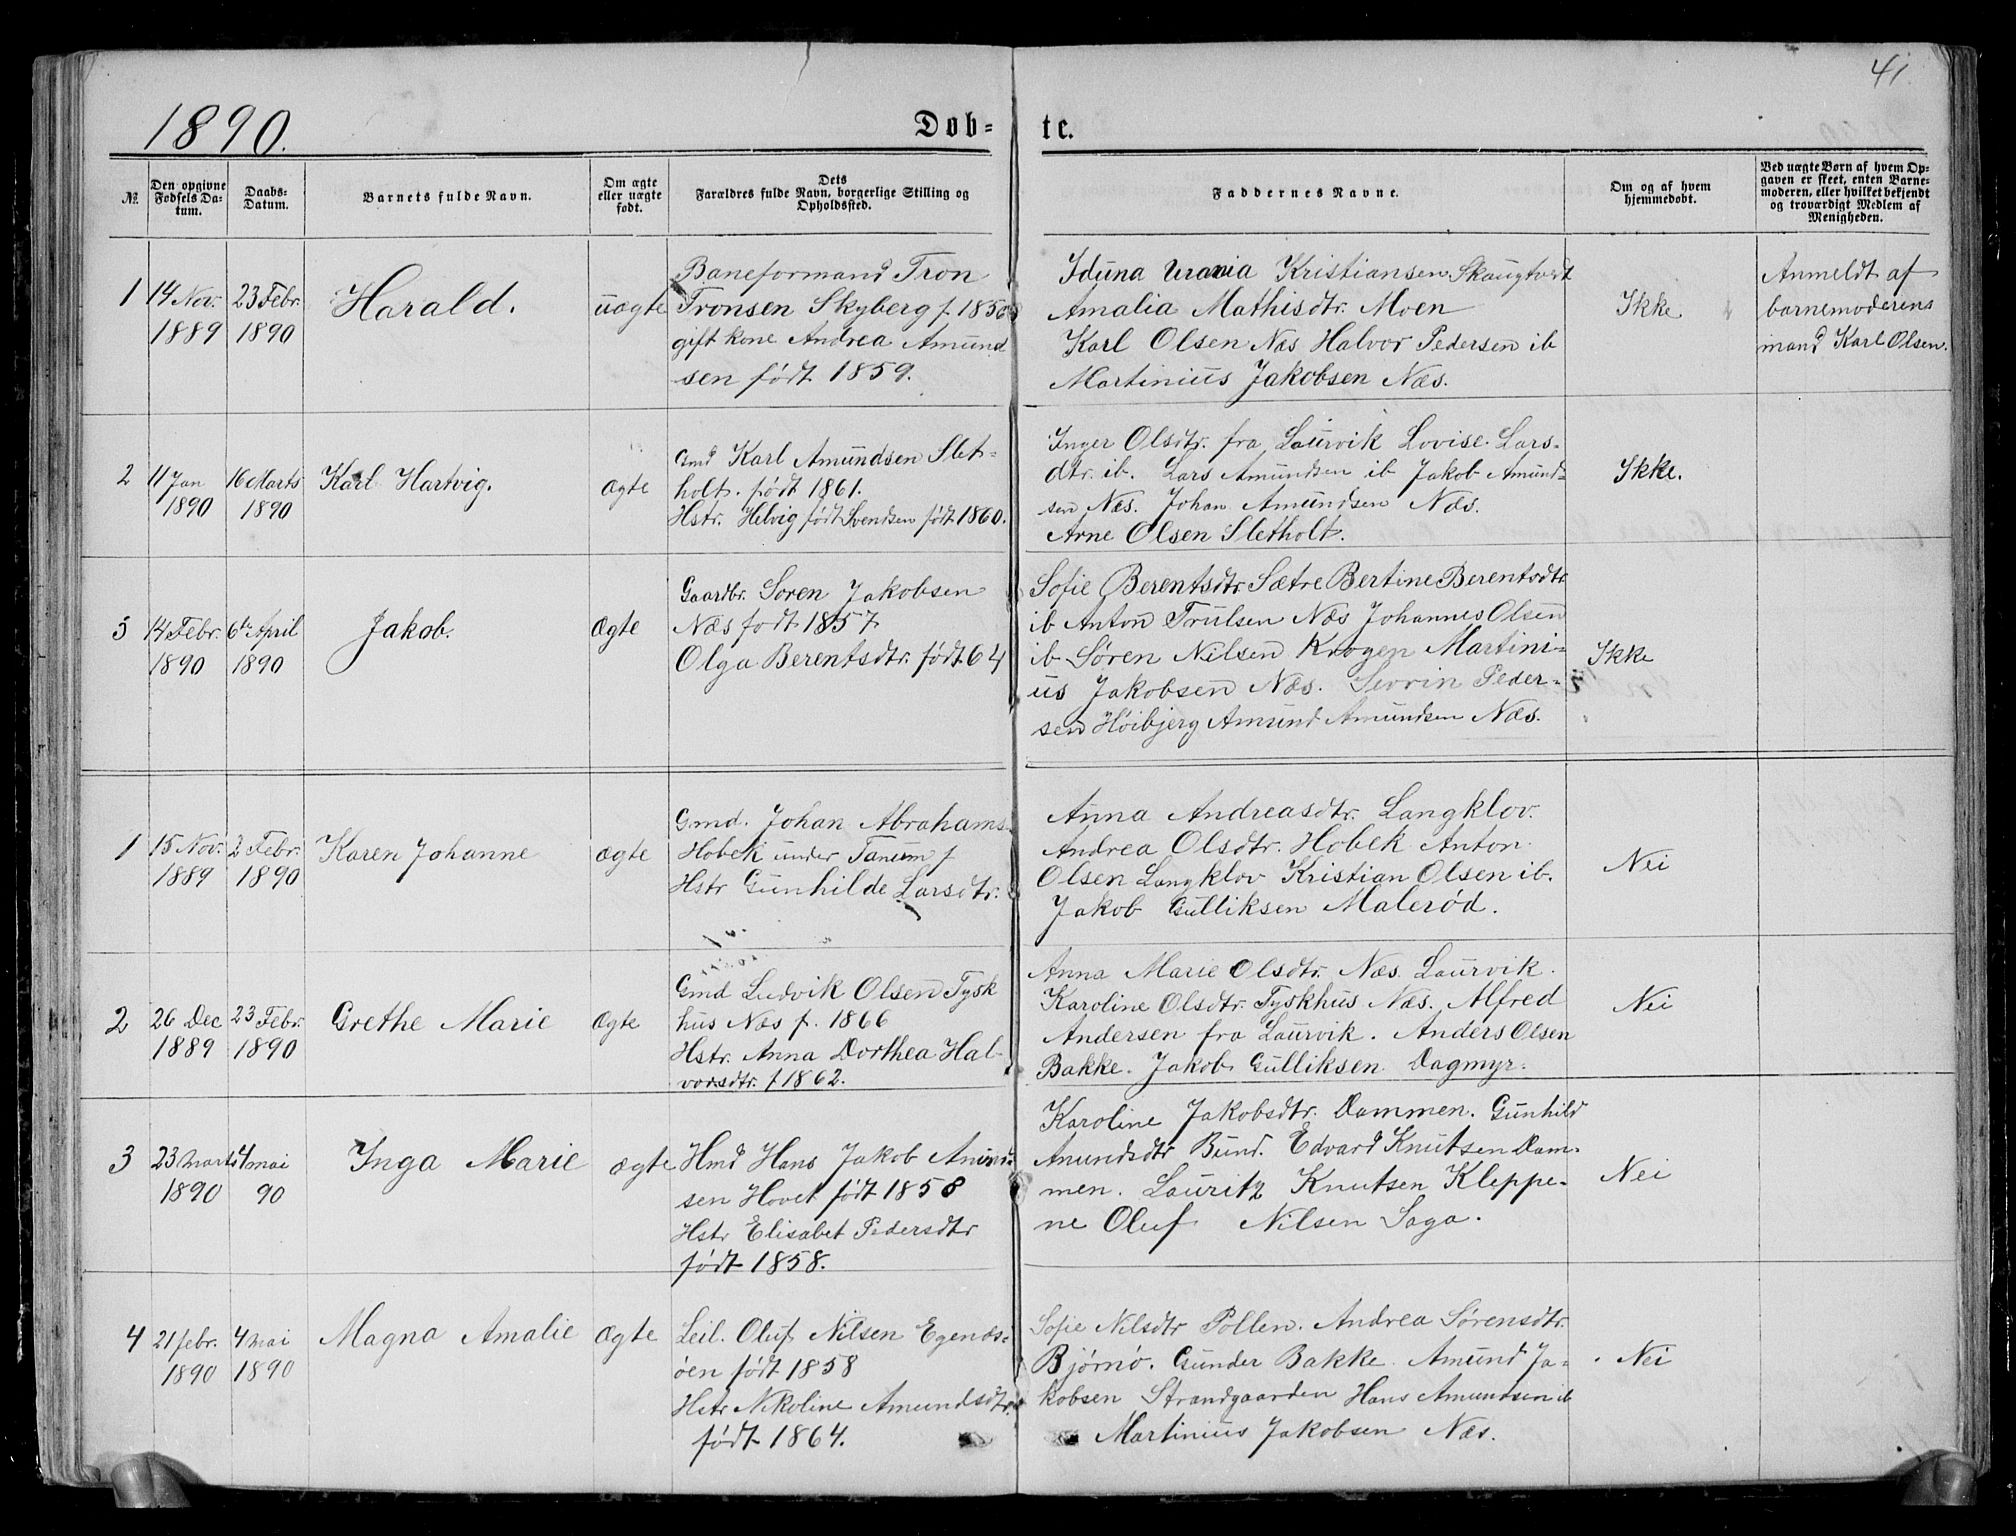 41
1890.
Døb-
te.
№
Den opgivne Fødsels Da-tum.
Daabs-Datum.
Barnets fulde Navn.
Om ægte eller uægte født.
Dets Forældres fulde Navn, borgerlige Stilling og Opholdssted.
Faddernes Navne.
Om og af hvem hjemmedøbt.
Ved uægte Børn af hvem Op-gaven er skeet, enten Barne-moderen, eller hvilket bekjendt og troværdigt Medlem af Menigheden.
1
14 Nov.
1889
23 Febr.
1890
Harald.
uægte
Baneformand Tron
Tronsen Skyberg f. 1850
gift kone Andrea Amund
sen født 1859.
Iduna Urania Kristiansen Skaugtvedt
Amalia Mathisdtr. Moen
Karl Olsen Næs Halvor Pedersen ib
Martinius Jakobsen Næs.
Ikke
Anmeldt af
barnemoderens
mand Karl Olsen.
2
11 Jan
1890
16 Marts
1890
Karl Hartvig.
ægte
Gmd Karl Amundsen Slet-
holt. født 1861.
Hstr. Helvig født Svendsen født 1860.
Inger Olsdtr. fra Laurvik Lovise Lars-
dtr. ib. Lars Amundsen ib Jakob Amund-
sen Næs. Johan Amundsen Næs.
Arne Olsen Sletholt.
Ikke.
3
14 Febr.
1890
6te April
1890
Jakob.
ægte
Gaardbr. Soren Jakobsen
Næs født 1857
Olga Berentsdtr. født 64
Sofie Berentsdtr Sætre Bertine Berentsdtr
ib Anton Trulsen Næs Johannes Olsen
ib Søren Nilsen Krogen Martini-
us Jakobsen Næs. Sevrin Peder-
sen Høibjerg Amund Amundsen Næs.
Ikke
1
15 Nov.
1889
2 Febr.
1890
Karen Johanne
ægte
Gmd. Johan Abrahams.
Hobek under Tanum f
Hstr Gunhilde Larsdtr.
Anna Andreasdtr. Langklov.
Andrea Olsdtr. Hobek Anton
Olsen Langklov Kristian Olsen ib.
Jakob Gulliksen Malerød.
Nei
2
26 Dec
1889
23 Febr.
1890
Grethe Marie
ægte
Gmd Ludvik Olsen Tysk
hus Næs f. 1866
Hstr. Anna Dorthea Hal-
vorsdtr. f 1862.
Anna Marie Olsdtr. Næs Laurvik.
Karoline Olsdtr. Tyskhus Næs. Alfred
Andersen fra Laurvik. Anders Olsen
Bakke. Jakob Gulliksen Dagmyr.
Nei
3
23 marts
1890
4 mai
90
Inga Marie
ægte
Hmd Hans Jakob Anund-
sen Hovet født 1858
Hstr Elisabet Pedersdtr
født 1858.
Karoline Jakobsdtr. Dammen. Gunhild
Amundsdtr Bund. Edvard Knutsen Dam-
men. Lauritz Knutsen Kleppe-
ne Oluf Nilsen Saga.
Nei
4
21 febr.
1890
4 mai
1890
Magna Amalie
ægte
Leil. Oluf Nilsen Egenæs-
øen født 1858
Hstr Nikoline Amundsdtr.
født 1864.
Sofie Nilsdtr Pollen. Andrea Sørensdtr.
Bjørnø. Gunder Bakke. Amund Ja-
kobsen Strandgaarden Hans Amundsen ib
Martinius Jakobsen Næs.
Nei